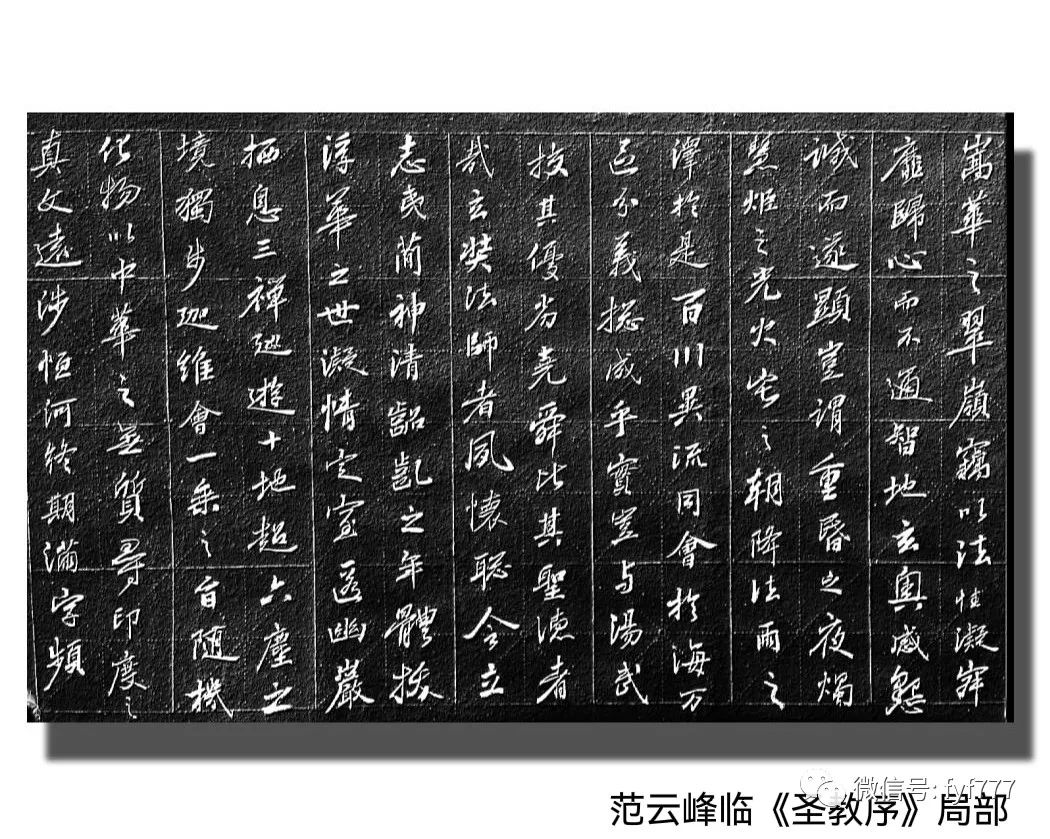 嵩華之翠嶺竊以法性凝寂
靡歸心而不通智地玄奥感懇
誠而遂顯豈謂重昏之夜燭
慧炬之光火宅之朝降法雨之
澤於是百川異流同會於海万
區分義揔成乎實豈与湯武
校其優劣堯舜比其聖德者
哉玄奘法師者夙懷聡令立
志夷簡神清齠齓之年體拔
浮華之世凝情定室匿幽巖
栖息三禪巡遊十地超六塵之
境獨步迦維會一乘之旨随機
化物以中華之無質尋印度之
真文遠涉恒河終期滿字頻
微信号: fyf777
范云峰临《圣教序》局部